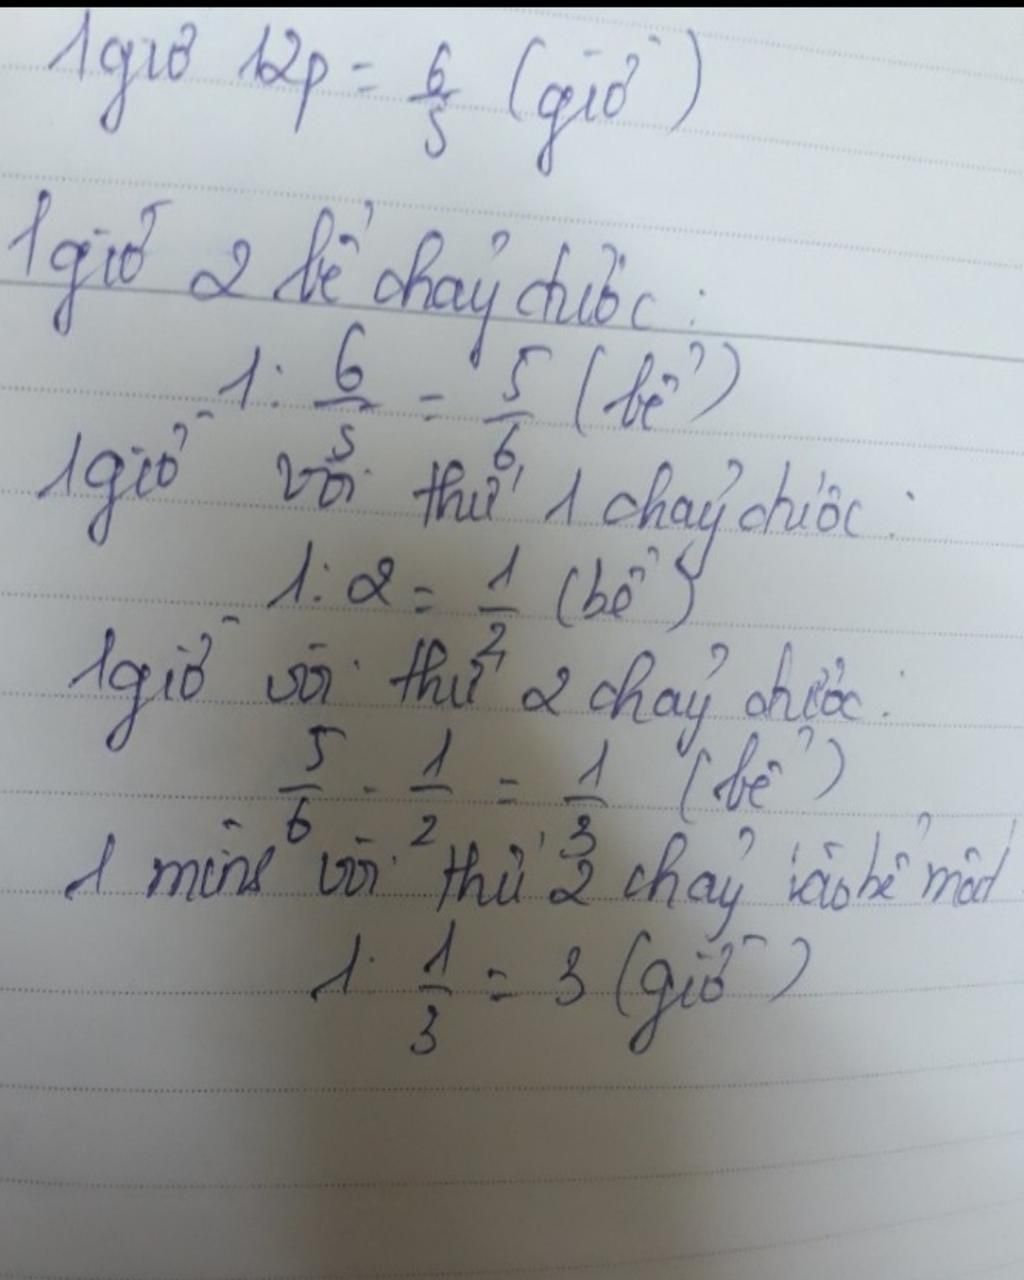 1giờ 12p = 6/5 (giờ)
1giờ 2 bể chảy được:
1: 6/5 = 5/6 (bể)
1giờ vòi thứ 1 chảy được:
1: 2 = 1/2 (bể)
1giờ vòi thứ 2 chảy được:
5/6 - 1/2 = 1/3 (bể)
1 mình vòi thứ 2 chảy vào bể mất
1: 1/3 = 3 (giờ)